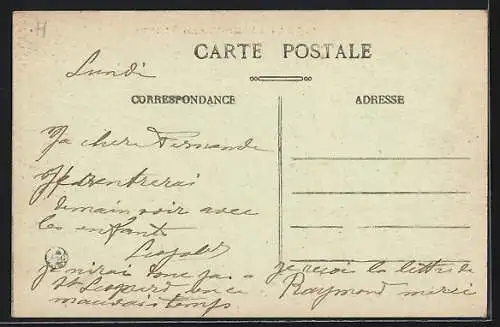 H
CARTE POSTALE
Lundi
CORRESPONDANCE
ADRESSE
Ma chère Fernande
Je rentrerai
demain soir avec
les enfants
Léopold
je n'irai donc pas a
St Léopard vu ce
mauvais temps
je reçoi la lettre de
Raymond merci